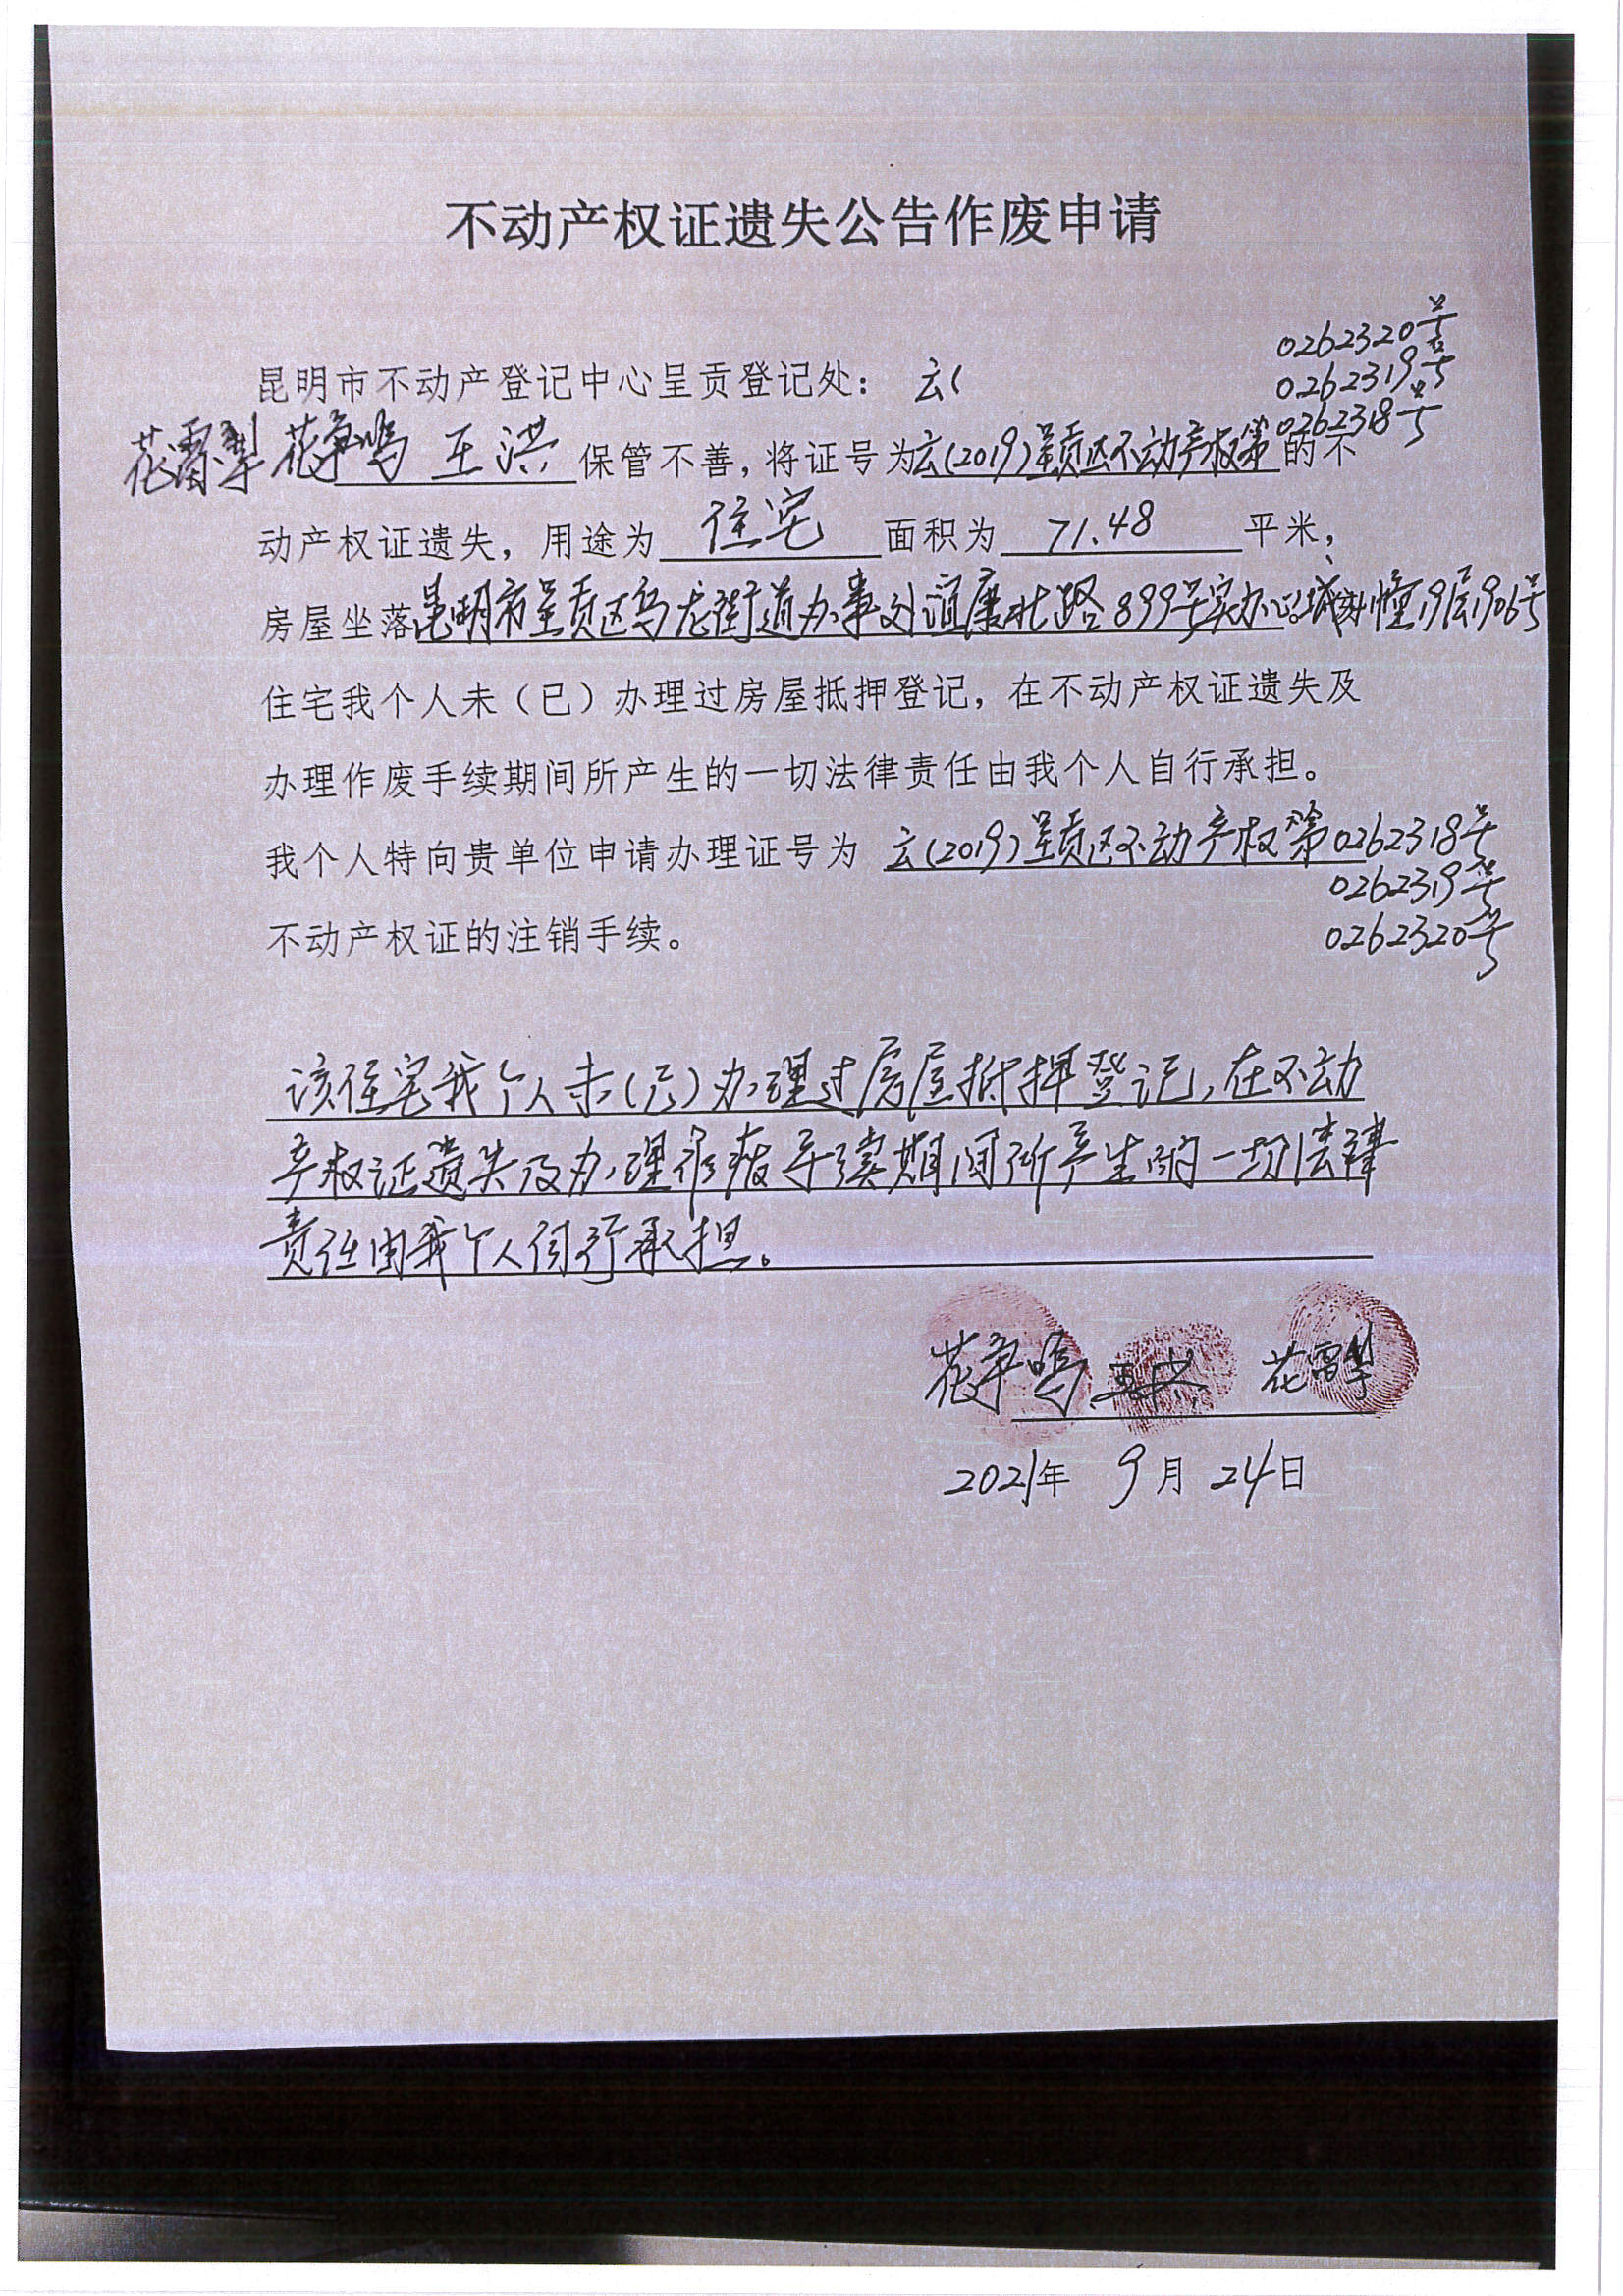 不动产权证遗失公告作废申请
0262320号
0262319号
昆明市不动产登记中心呈贡登记处： 云(
0262318号
花雪梨 花争鸣 王洪 保管不善，将证号为云(2019)呈贡区不动产权第 的不
动产权证遗失，用途为 住宅 面积为 71.48 平米，
房屋坐落昆明市呈贡区乌龙街道办事处谊康北路899号实力心城 幢19层1906号
住宅我个人未（已）办理过房屋抵押登记，在不动产权证遗失及
办理作废手续期间所产生的一切法律责任由我个人自行承担。
我个人特向贵单位申请办理证号为 云(2019)呈贡区不动产权第0262318号
0262319号
0262320号
不动产权证的注销手续。
该住宅我个人未(已)办理过房屋抵押登记,在不动
产权证遗失及办理作废手续期间所产生的一切法律
责任由我个人自行承担。
花争鸣 王洪 花雪梨
2021年 9月 24日